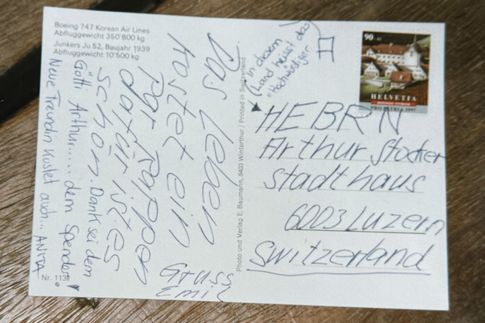 Boeing 747 Korean Air Lines
Abfluggewicht 350'800 kg
Junkers Ju 52, Baujahr 1939
Abfluggewicht 10'500 kg
Das Leben
kostet ein
par rappen
dafür ist es
schön. Dank sei dem
Götti Arthur..... dem Spender!
Neue Freundin kostet auch... ANITA
Gruss
Emil
Nr. 113
Photo und Verlag E. Baumann, 8400 Winterthur / Printed in Switzerland
in diesem
Land heisst das
Hochwürdiger
90
HELVETIA
PRO PATRIA 1997
HEBRN
Arthur Stocker
Stadthaus
6003 Luzern
Switzerland